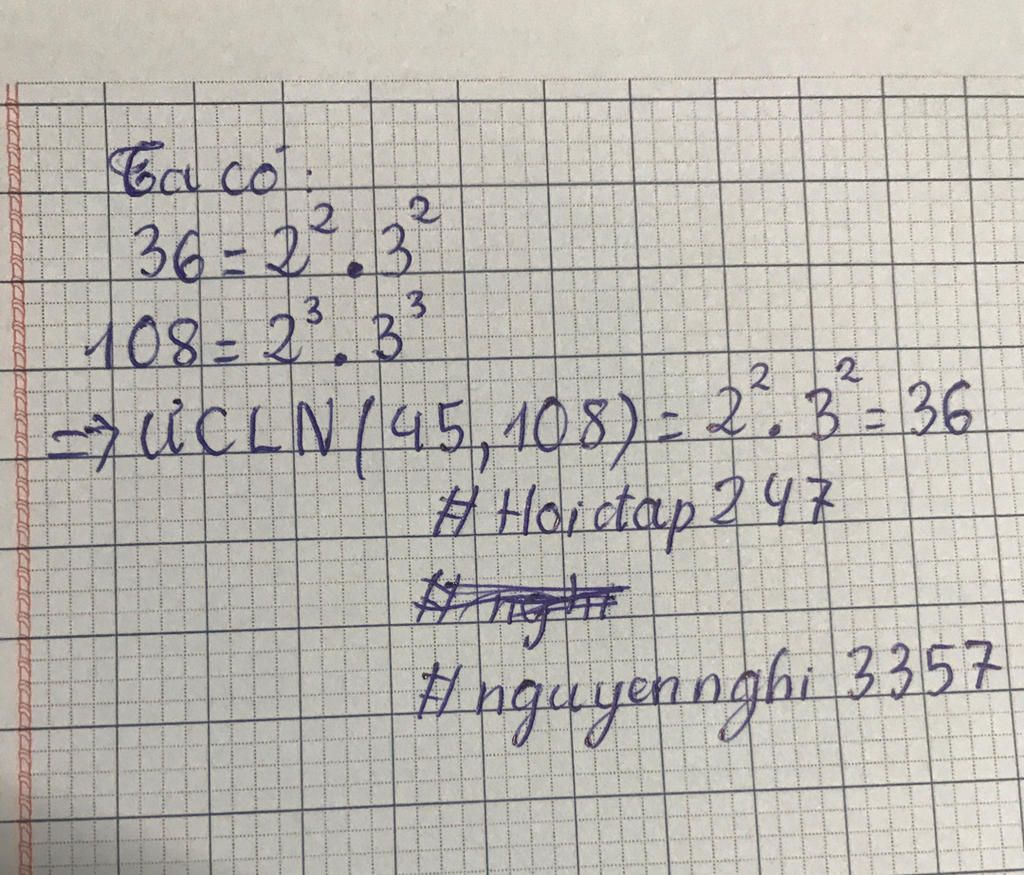 Ta có:
36 = 2² . 3²
108 = 2³ . 3³
=> ƯCLN (45, 108) = 2² . 3² = 36
# Hoidap 247
# nguyennghi 3357